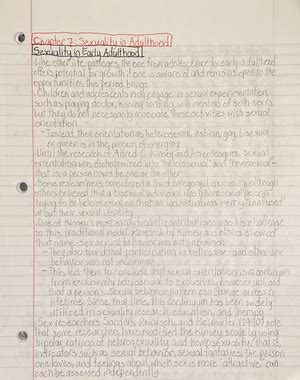 Chapter 7: Sexuality in Adulthood
Sexuality in Early Adulthood
Like other life passages, the one from adolescence to early adulthood
offers potential for growth if one is aware of and remains open to the
opportunities this period brings
- Children and adolescents may engage in sexual experimentation
such as playing doctor, kissing, fondling, with members of both sexes
but they do not necessarily associate these activities with sexual
orientation
- Instead, their orientation as heterosexual, lesbian, gay, bisexual
or queer is in the process of emerging
- Until the research of Alfred C. Kinsey and his colleagues, sexual
orientation was dichotomized into "heterosexual" and "homosexual" -
that is a person could be one or the other
- Some researchers considered a third category, bisexuality, although
others believed that a bisexual individual was a homosexual person
trying to be heterosexual or that an individual was merely "confused"
about their sexual identity
- One of Kinsey's most significant contributions was the challenge
to this traditional model. Research by Kinsey and others showed
that same-sex sexual behavior was not uncommon
- They also found that participating in both same and other-sex
behavior was not uncommon
- This led them to conclude that sexual orientation is a continuum
from exclusively heterosexual to exclusively homosexual and
that a person's sexual behavior pattern can change across a
lifetime. Since that time, this continuum has been widely
utilized in sexuality research, education, and therapy
- Sex researchers Sanders, Reinisch, and McWhirter (1990) note
that some researchers have modified the Kinsey scale by using
bipolar ratings of heterosexuality and homosexuality, that is,
indicators such as sexual behavior, sexual fantasies, the person
one loves, and feelings about which sex is more "attractive" can
each be assessed independently